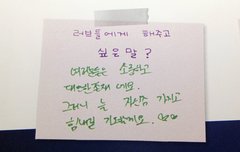 러브들에게 해주고
싶은말?
여러분들은 소중하고
대단한존재 에요.
그러니 늘 자신감 가지고
힘내길 기도할게요.